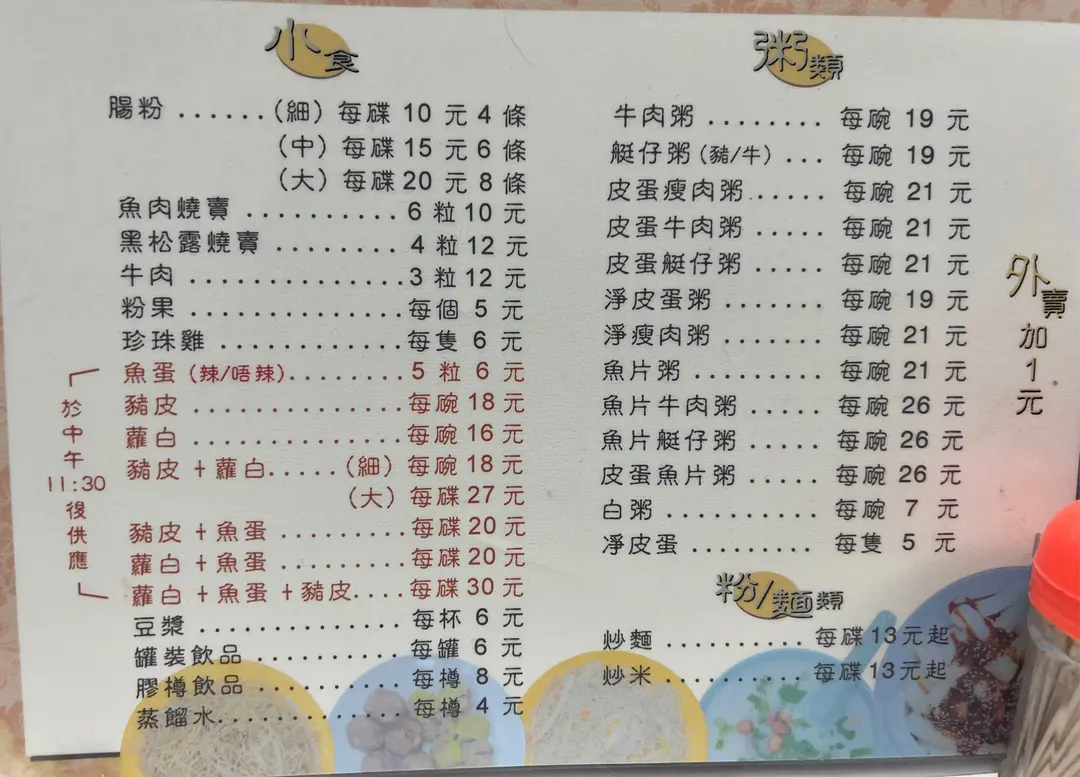 小食
腸粉 ......(細) 每碟 10 元 4 條
(中) 每碟 15 元 6 條
(大) 每碟 20 元 8 條
魚肉燒賣 .......... 6 粒 10 元
黑松露燒賣 ........ 4 粒 12 元
牛肉 ..............3 粒 12 元
粉果 ..............每個 5 元
珍珠雞 .............每隻 6 元
於中午11:30後供應
魚蛋 (辣/唔辣)........ 5 粒 6 元
豬皮 ..............每碗 18 元
蘿白 ..............每碗 16 元
豬皮 + 蘿白.....(細) 每碗 18 元
(大) 每碟 27 元
豬皮 + 魚蛋 ........ 每碟 20 元
蘿白 + 魚蛋 ........ 每碟 20 元
蘿白 + 魚蛋 + 豬皮.... 每碟 30 元
豆漿 ............. 每杯 6 元
罐裝飲品 .......... 每罐 6 元
膠樽飲品 .......... 每樽 8 元
蒸餾水............. 每樽 4 元
粥類
牛肉粥 ........ 每碗 19 元
艇仔粥 (豬/牛) ... 每碗 19 元
皮蛋瘦肉粥..... 每碗 21 元
皮蛋牛肉粥..... 每碗 21 元
皮蛋艇仔粥 ..... 每碗 21 元
淨皮蛋粥 ....... 每碗 19 元
淨瘦肉粥 ....... 每碗 21 元
魚片粥 ......... 每碗 21 元
魚片牛肉粥 ..... 每碗 26 元
魚片艇仔粥 ..... 每碗 26 元
皮蛋魚片粥 ..... 每碗 26 元
白粥 .......... 每碗 7 元
淨皮蛋 ......... 每隻 5 元
粉/麵類
炒麵 .......... 每碟 13元起
炒米 .......... 每碟 13元起
外賣加1元